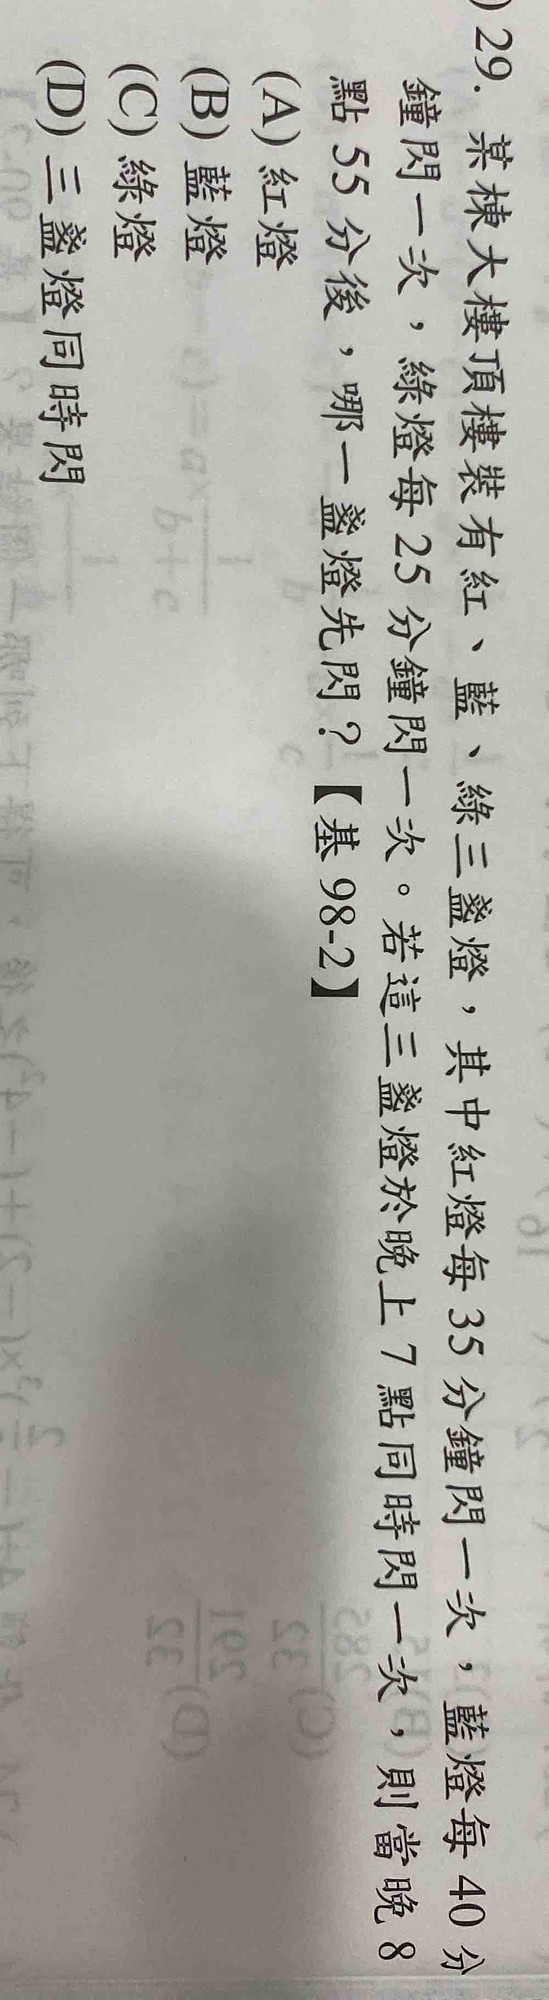 ) 29. 某棟大樓頂樓裝有紅、藍、綠三盞燈，其中紅燈每 35 分鐘閃一次，藍燈每 40 分
鐘閃一次，綠燈每 25 分鐘閃一次。若這三盞燈於晚上 7 點同時閃一次，則當晚 8
點 55 分後，哪一盞燈先閃？【基 98-2】
(A) 紅燈
(B) 藍燈
(C) 綠燈
(D) 三盞燈同時閃